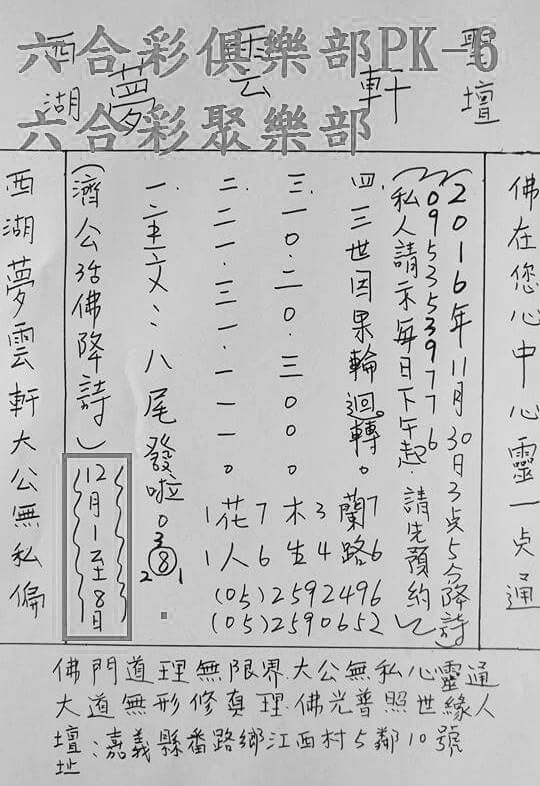 六合彩俱樂部PK-6
六合彩聚樂部
西湖
夢雲軒
聖壇
西湖夢雲軒大公無私偏
(濟公活佛降詩)
12月1至8日
一.二主文:八尾發啦。
3
2⑧1
二.二一.三一.一一一。
三.一0.二0.三000。
四.三世因果輪迴。轉。
1花7木3蘭7
1人6生4路6
(05)2592496
(05)2590652
(私人請示每日下午起.請先預約)
0953539776
(2016年11月30日3点5分降詩)
佛在您心中心靈一点通
佛門道理無限界.大公無私心靈通
大道無形修真理.佛光普照世緣人
壇址:嘉義縣番路鄉江西村5鄰10號